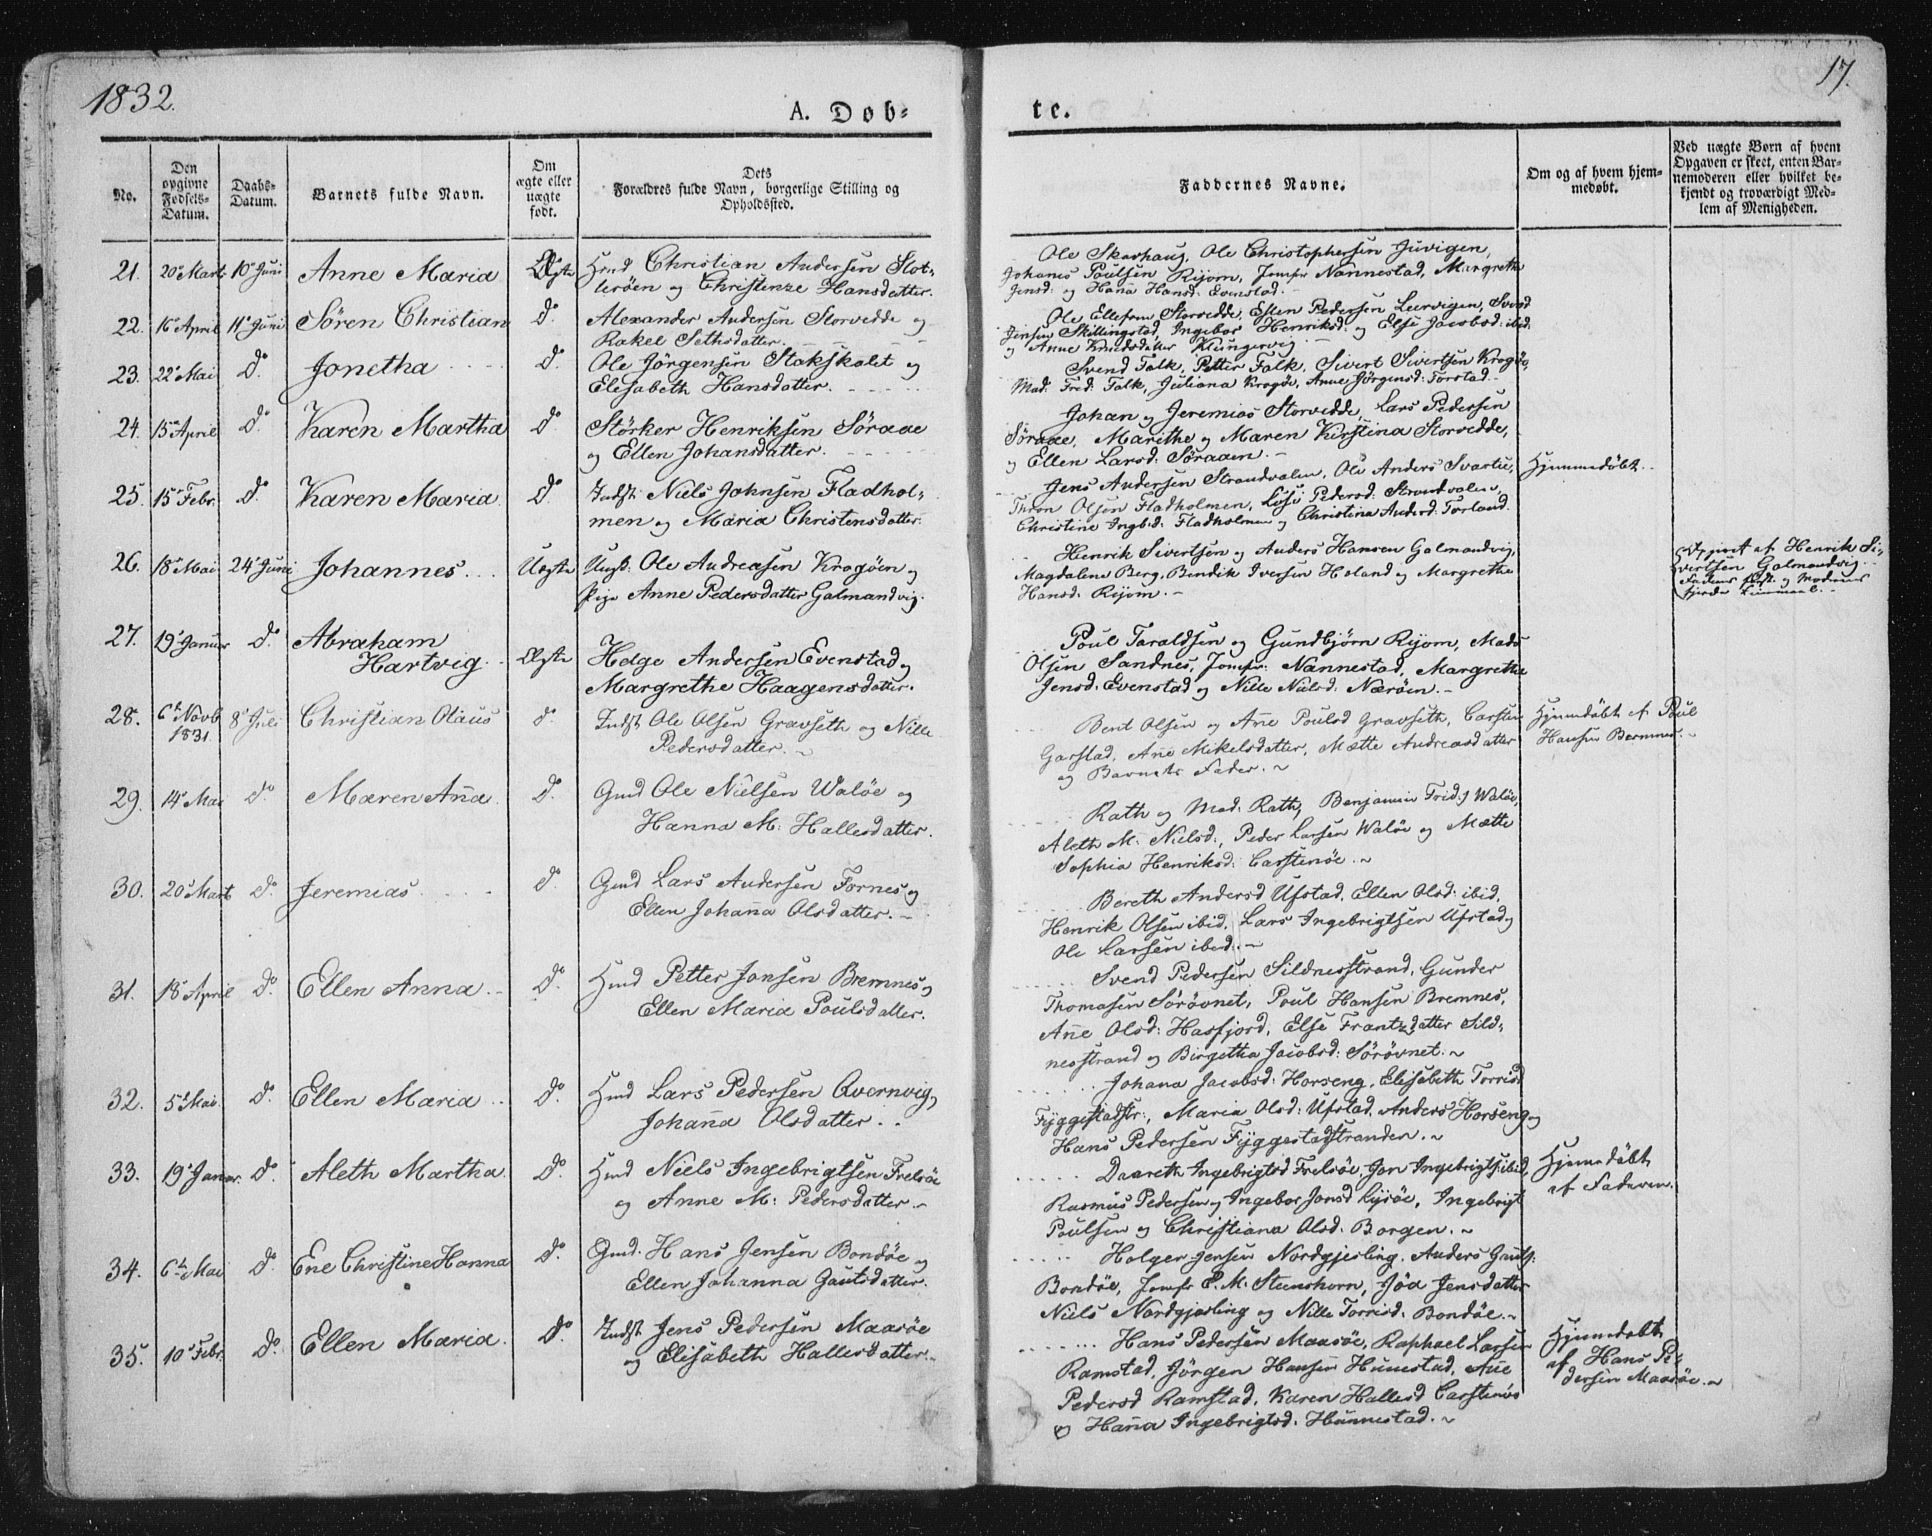 1832.
A. Døb-
te.
17.
No.
Den opgivne Fødsels-Datum.
Daabs-Datum.
Barnets fulde Navn.
Om ægte eller uægte født.
Dets Forældres fulde Navn, borgerlige Stilling og Opholdssted.
Faddernes Navne.
Om og af hvem hjem-
medøbt.
Ved uægte Børn af hvem
Opgaven er skeet, enten Bar-
nemoderen eller hvilket be-
kjendt og troværdigt Med-
lem af Menigheden.
21. 20de Mart 10de Juni Anne Maria Ægte Hmd Christian Andersen Slot-
terøen og Christenze Hansdatter.
Ole Skarhaug, Ole Christophersen Juvigen,
Johanes Poulsen Rijom, Jomfr Nannestad, Margrethe
Jensd: og Hana Hansd: Evenstad.
22. 16 April 11te Juni Sören Christian do Alexander Andersen Storvedde og
Rakel Sethsdatter.
Ole Ellefsen Storvedde, Esten Pedersen Leervigen, Svend
Jensen Skillingstad, Ingebor Henriksd: og Else Jacobsd: ibid.
og Anne Knudsdatter Klungervig.
23. 22de Mai do. Jonetha do Ole Jörgensen Stokskalet og
Elisabeth Hansdatter.
Svend Falk, Petter Falk, Sivert Sivertsen Krogöe,
Mad. Fred: Falk, Juliana Krogöe, Anne Jörgensd: Torstad.
24. 15de April do. Karen Martha do. Störker Henriksen Söraae
og Ellen Johansdatter.
Johan og Jeremias Storvedde, Lars Pedersen
Söraae, Marithe og Maren Kirstina Storvedde,
og Ellen Larsd: Söraaen.
25. 15de Febr. do. Karen Maria do. Indst: Niels Johnsen Fladhol-
men og Maria Christensdatter.
Jens Andersen Strandvalen, Ole Anders Svartie,
Thron Olsen Fladholmen, Lisi Pedersd: Strandvalen,
Christine Ingbd: Fladholmen og Christina Andersd: Torland.
Hjemmedøbt.
26. 18de Mai 24de Juni Johannes Uægte Ungk. Ole Andreasen Krogöen og
Pige Anne Pedersdatter Galmandvig.
Henrik Sivertsen og Anders Hansen Galmandvig,
Magdalene Berg, Bendik Iversen Holand og Margrethe
Hansd: Rijom.
Opgivet af Henrik Si-
vertsen Galmandvig.
Faderens og Moderens
fjerde Leiermaal.
27. 19de Januar do. Abraham
Hartvig Ægte Helge Andersen Evenstad og
Margrethe Haagensdatter.
Poul Taraldsen og Gundbjörn Rijom, Mads
Olsen Sandnes, Jomfr: Nannestad, Margrethe
Jensd: Evenstad og Nille Nielsd: Næröen.
28. 6te Novb
1831. 8de Juli Christian Olaus do. Indst Ole Olsen Gravseth og Nille
Pedersdatter.
Bent Olsen og Ane Poulsd Gravseth, Carsten
Garstad, Ane Mikelsdatter, Mætte Andreasdatter
og Barnets Fader.
Hjemedøbt af Poul
Hansen Bremnes.
29. 14de Mai do. Maren Ana do. Gmd Ole Nielsen Walöe og
Hanna M: Hallesdatter.
Rath og Mad: Rath, Benjamin Frid:s Walöe,
Aleth M: Nielsd:, Peder Larsen Walöe og Mætte
Sophia Henriksd: Carstenöe.
30. 20de Mart do. Jeremias do. Gmd Lars Andersen Fornes og
Ellen Johana Olsdatter.
Bereth Andersd Ufstad, Ellen Olsd: ibid,
Henrik Olsen ibid, Lars Ingebrigtsen Ufstad og
Ole Larsen ibid.
31. 18de April do. Ellen Anna do. Hmd Petter Jonsen Bremnes og
Ellen Maria Poulsdatter.
Svend Pedersen Sildnesstrand, Gunder
Thomasen Sörövnet, Poul Hansen Bremnes,
Ane Olsd: Hasfjord, Else Frantzdatter Sild-
nesstrand og Birgetha Jacobsd: Sörövnet.
32. 5te Mai do. Ellen Maria do. Hmd Lars Pedersen Qvernvig og
Johana Olsdatter.
Johana Jacobsd: Horseng, Elisabeth Torrisd
Fyggestadstr:, Maria Olsd: Ufstad, Anders Horseng og
Hans Pedersen Fyggestadstranden.
33. 19de Januar. do. Aleth Martha do. Hmd Niels Ingebrigtsen Frelsöe
og Anne M: Pedersdatter
Daareth Ingebrigtsd Frelsöe, Jon Ingebrigts: ibid,
Rasmus Pedersen og Ingebor Jonsd Lysöe, Ingebrigt
Poulsen og Christiana Olsd: Borgen.
Hjemedøbt
af Faderen.
34. 6te Mai do. Ene Christine Hanna do. Gmd. Hans Jensen Bondöe og
Ellen Johanna Gautsdatter.
Holger Jensen Nordgjesling, Anders Gauts:
Bondöe, Jomfr E. M. Steenshorn, Jöa Jensdatter
Niels Nordgjæsling og Nille Torrisd: Bondöe.
35. 10de Febr. do. Ellen Maria do. Indst Jens Pedersen Maasöe
og Elisabeth Hallesdatter.
Hans Pedersen Maasöe, Raphael Larsen
Ramstad, Jörgen Hansen Hunestad, Ane
Pedersd Ramstad, Karen Hallesd Carstenöe
og Hana Ingebrigtsd: Hunnestad.
Hjemedøbt
af Hans Pe-
dersen Maasöe.